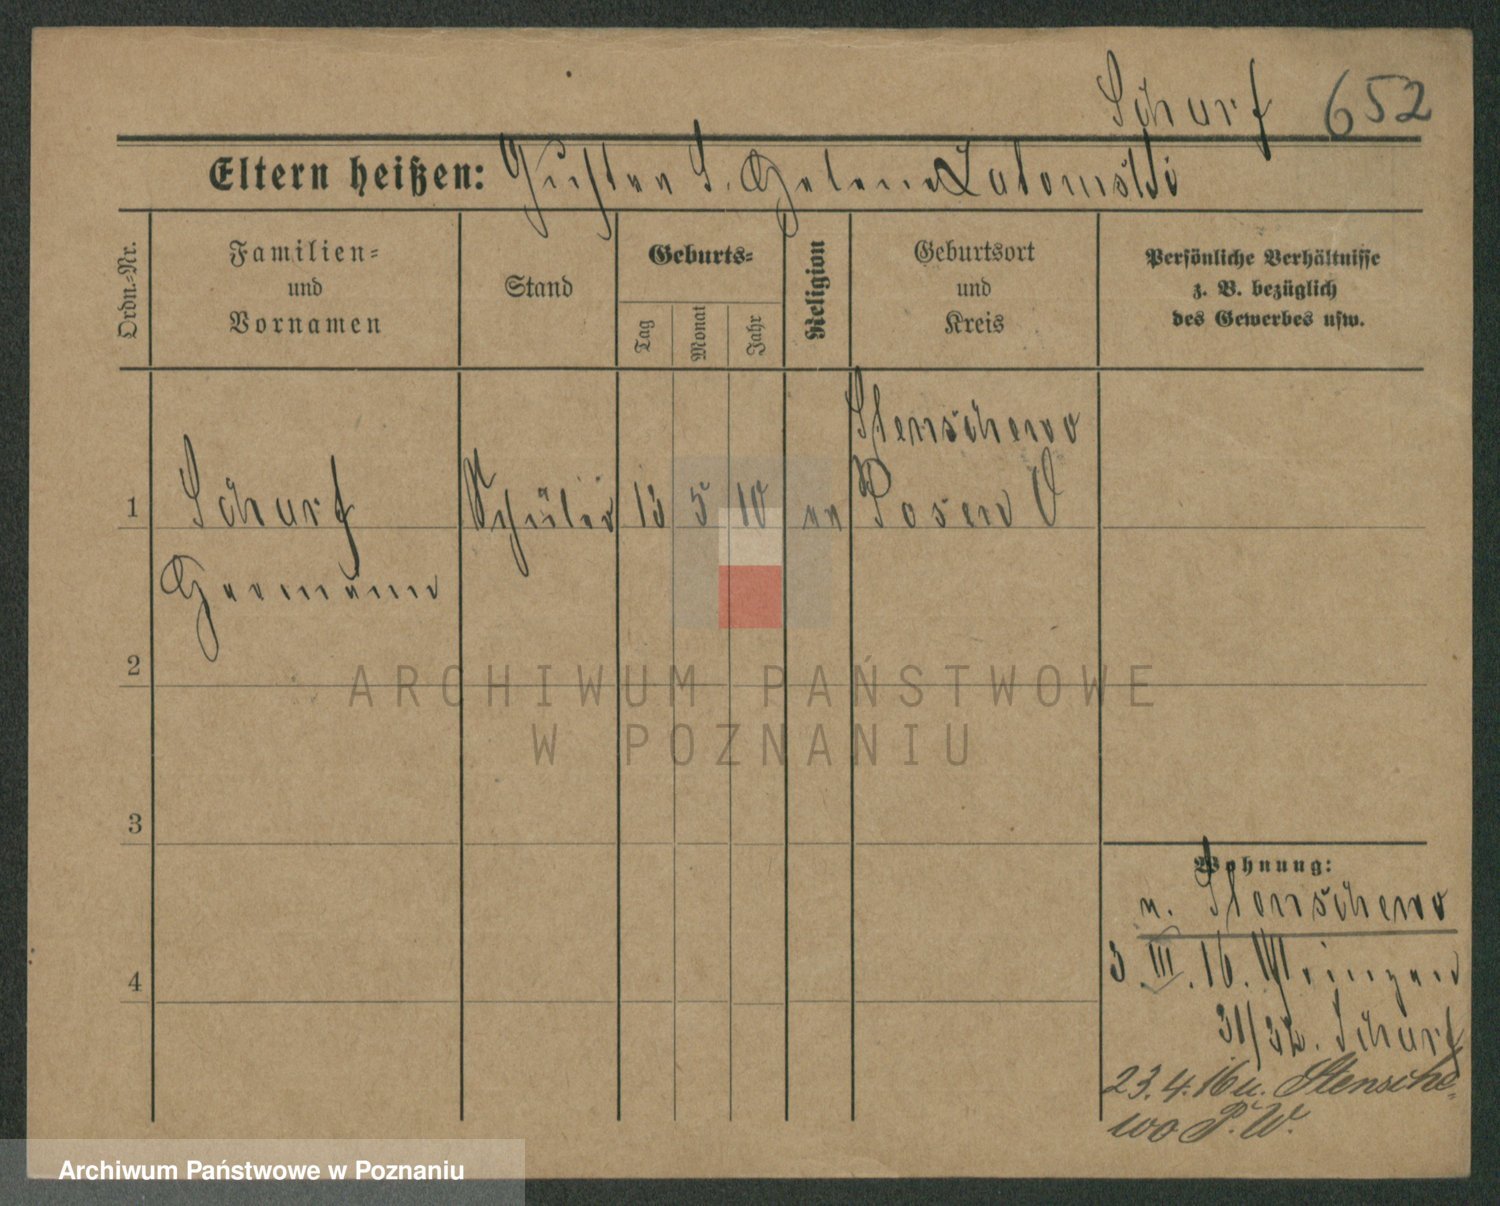 Schurf 652
Eltern heißen: Gustav S. Helene Latomski
Ordn.-Nr.
Familien-
und
Vornamen
Stand
Geburts-
Tag
Monat
Jahr
Religion
Geburtsort
und
Kreis
Persönliche Verhältnisse
z. B. bezüglich
des Gewerbes usw.
Stenschewo
1 Schurf Schüler 13 5 10 ev Posen O
Hermann
2
3
4
Wohnung:
n. Stenschewo
3. III. 16.
31/32. Schurf
23. 4. 16 n. Stensche-
wo P. W.
ARCHIWUM PAŃSTWOWE
W POZNANIU
Archiwum Państwowe w Poznaniu